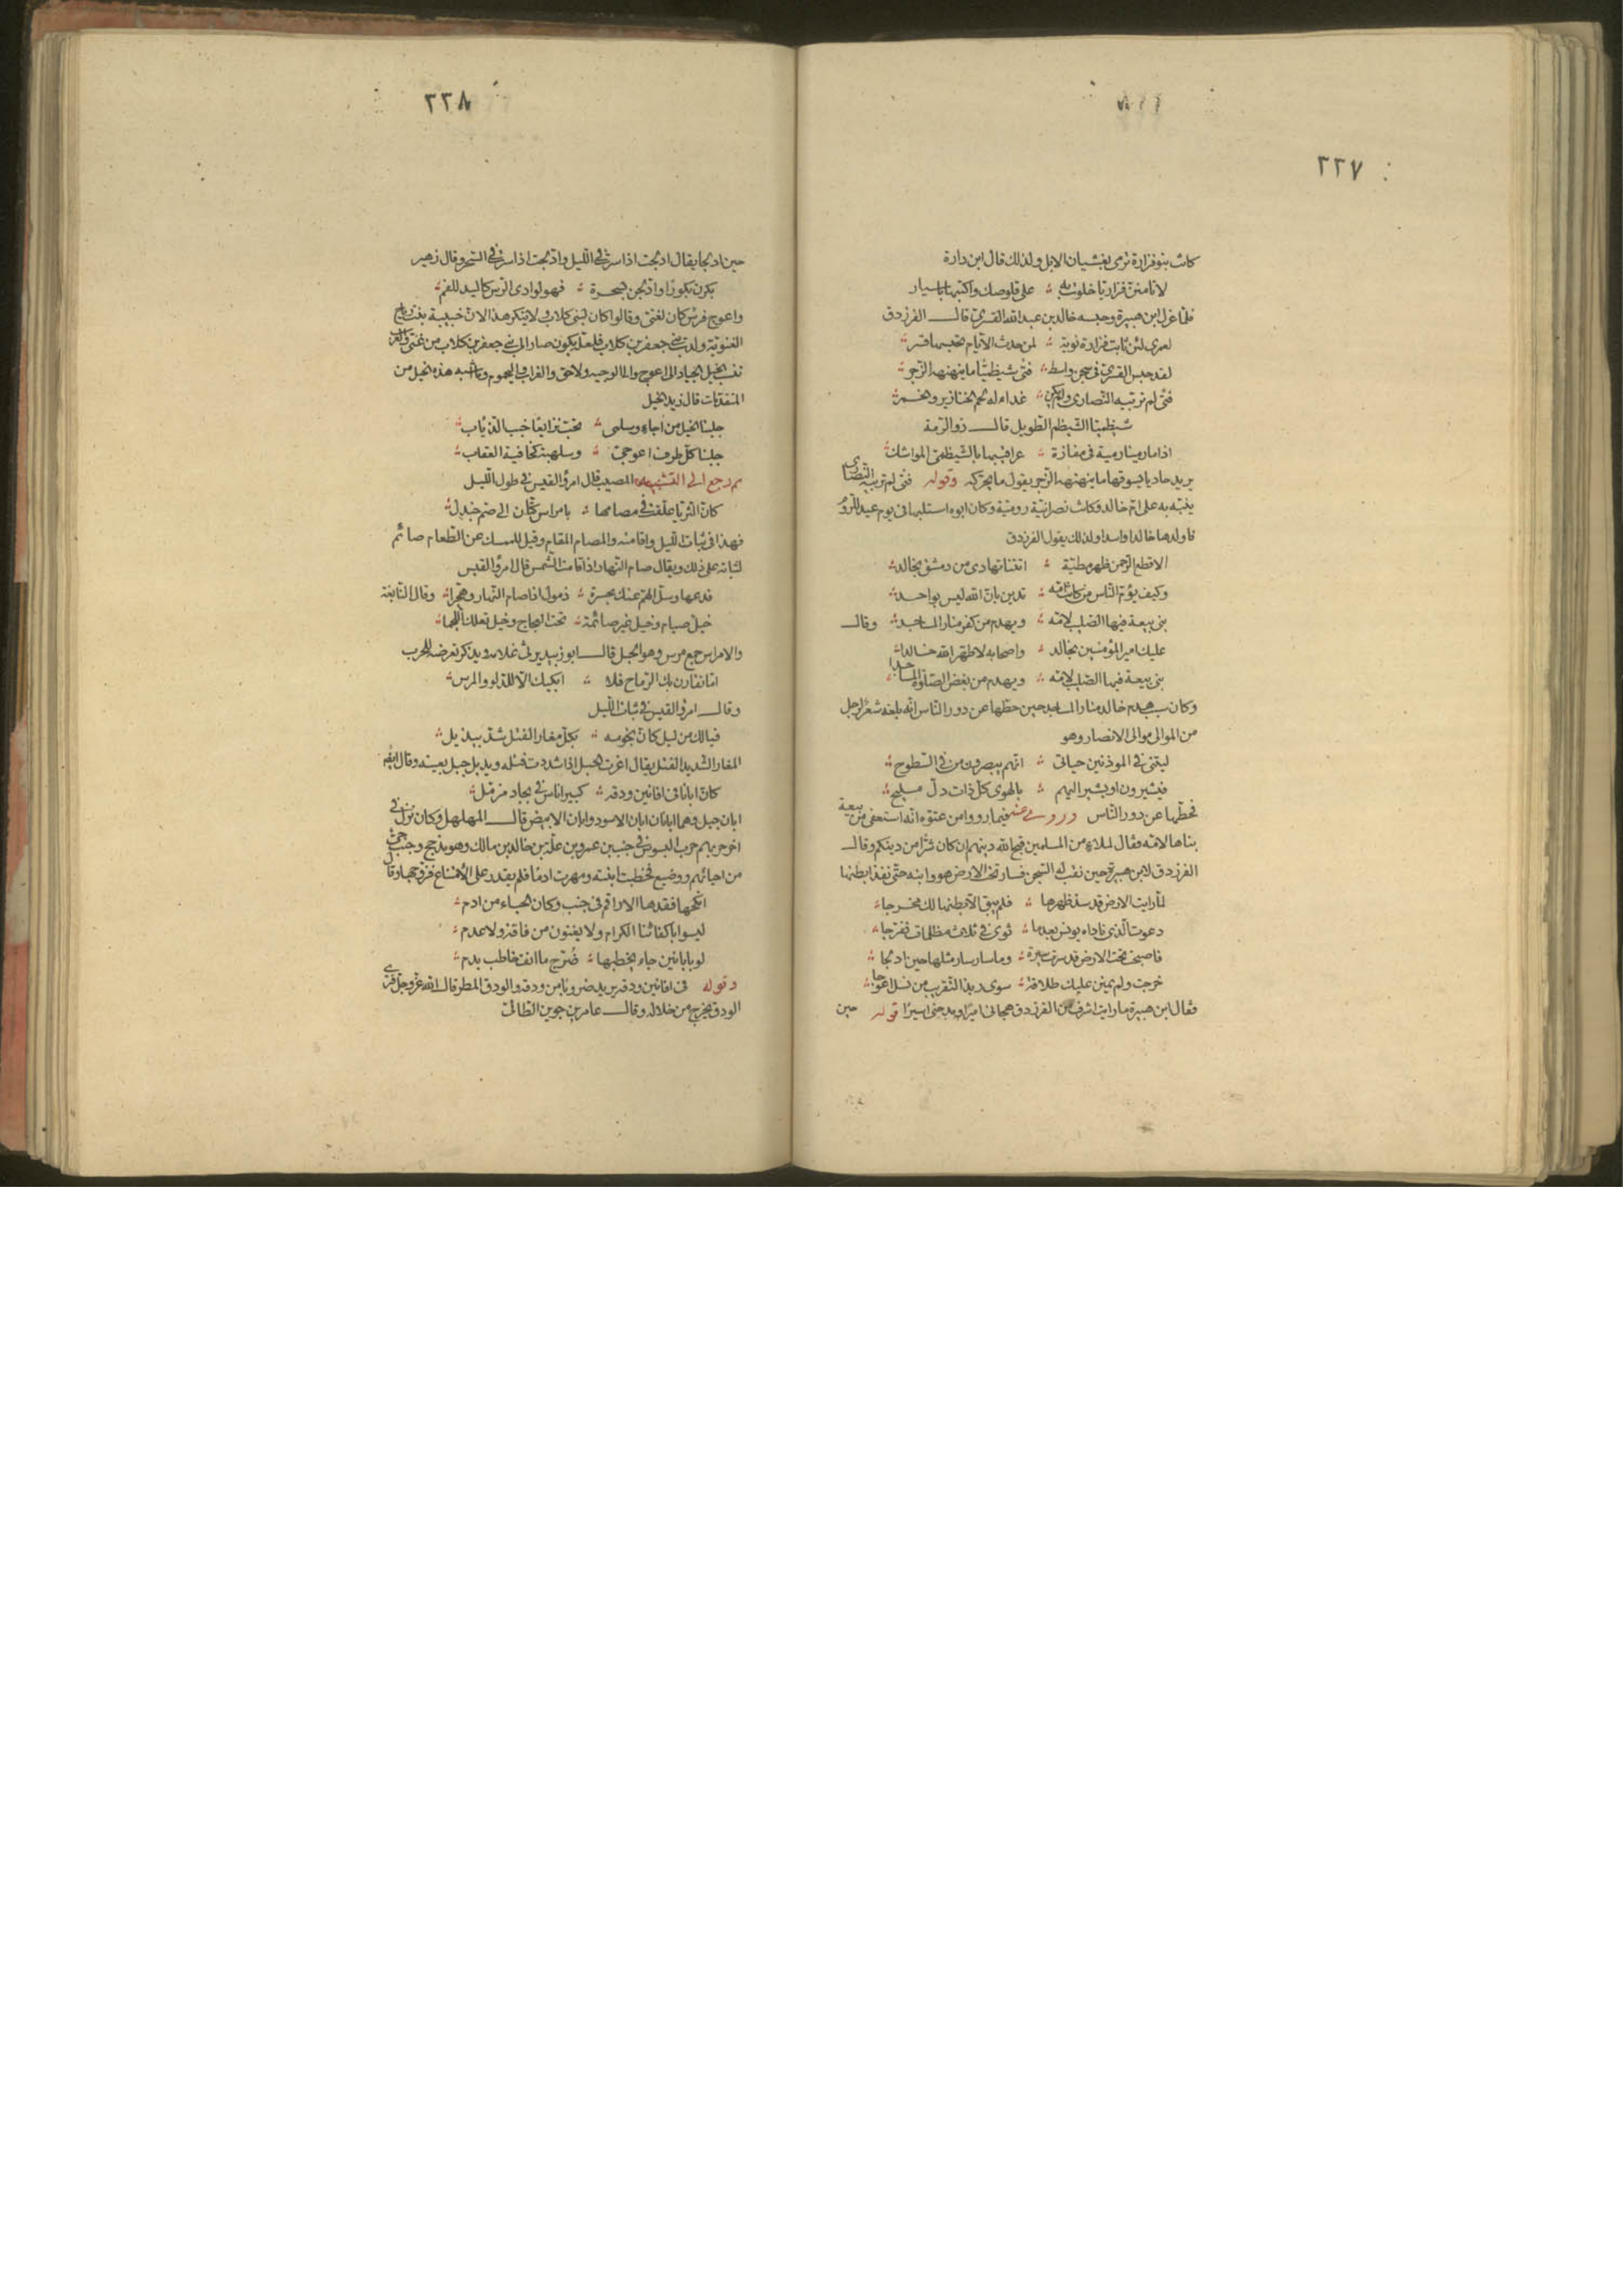 ٢٢٧
كانت بنو فزارة ترمى بغشيان الابل ولذلك قال ابن دارة
لا تأمننّ فزاريّا خلوت به على قلوصك واكتبها باسيار
فلمّا عزل ابن هبيرة وحبسه خالد بن عبد الله القسرىّ قال الفرزدق
لعمرى لئن نابت فزارة نوبة لمن حدث الايّام تحبسها قسر
لقد حبس القسرىّ فى سجن واسط فتى شيظميّا ما ينهنهه الزّجر
فتى لم تربّبه النّصارى ولم يكن غداء له لحم الخنازير والخمر
شيظميّا الشّيظم الطّويل قال ذو الرّمة
اذا ما رمينا رمية فى مفازة عراقيبها بالشّيظمىّ المواشك
يريد حاديا يسوقها ما ينهنهه الزّجر يقول ما يحرّكه وقوله فتى لم تربّبه النّصارى
ينبّه به على امّ خالد وكانت نصرانيّة روميّة وكان ابوه استلبها فى يوم عيد للرّوم
فاولدها خالدا واسدا ولذلك يقول الفرزدق
الا قطع الرّحمن ظهر مطيّة اتتنا تهادى من دمشق بخالد
وكيف يؤمّ النّاس من كانت امّه تدين بانّ الله ليس بواحد
بنى بيعة فيها الصّليب لامّه ويهدم من كفر منار المساجد وقال
عليك امير المؤمنين بخالد واصحابه لا طهّر الله خالدا
بنى بيعة فيها الصّليب لامّه ويهدم من بغض الصّلوة المساجدا
وكان سبب هدم خالد منار المساجد حين حطّها عن دور النّاس انّه بلغه شعر لرجل
من الموالى موالى الانصار وهو
ليتنى فى الموذنين حياتى انّهم يبصرون من فى السّطوح
فيشيرون او يشير اليهم بالهوى كلّ ذات دلّ مليح
فحطّها عن دور النّاس وروى عنه فيما رووا من عتوّه انّه استعفى من بيعة
بناها لامّه فقال لملاء من المسلمين قبح الله دينهم ان كان شرّا من دينكم وقال
الفرزدق لابن هبيرة حين نقب له السّجن فسار تحت الارض هو وابنه حتّى نفذا بطنها
لمّا رايت الارض قد سدّ ظهرها فلم يبق الّا بطنها لك مخرجا
دعوت الّذى ناداه يونس بعد ما ثوى فى ثلاث مظلمات ففرّجا
فاصبحت تحت الارض قد سرت سيرة وما سار سار مثلها حين ادلجا
خرجت ولم يمنن عليك طلاقة سوى ربذ التّقريب من نسل اعوجا
فقال ابن هبيرة ما رايت اشرف من الفرزدق هجانى اميرا ومدحنى اسيرا قوله حين
٢٢٨
حين ادلجا يقال ادلجت اذا سرت فى اللّيل وادّلجت اذا سرت فى السّحر وقال زهير
بكرن بكورا وادّلجن بسحرة فهنّ لوادى الرّس كاليد للفم
واعوج فرس كان لغنىّ وقالوا كان لبنى كلاب ولا ينكر هذا لانّ خبيبة بنت رياح
الغنويّة ولدت بنى جعفر بن كلاب فلعلّه يكون صار الى بنى جعفر بن كلاب من غنىّ والعرب
تنسب الخيل الجياد الى اعوج والى الوجيه ولاحق والغراب واليحموم وما اشبه هذه الخيل من
المتقدّمات قال زيد الخيل
جلبنا الخيل من اجاء وسلمى تخبّ نزايعا خبب الذئاب
جلبنا كلّ طرف اعوجىّ وسلهبة كخافية العقاب
ثم رجع الى التشبيه المصيب قال امرؤ القيس فى طول اللّيل
كانّ الثريّا علّقت فى مصامها بامراس كتّان الى صمّ جندل
فهذا فى ثبات اللّيل واقامته والمصام المقام وقيل للممسك عن الطّعام صائم
لثباته على ذلك ويقال صام النّهار اذا قامت الشّمس قال امرؤ القيس
فدعها وسلّ الهمّ عنك بجسرة ذمول اذا صام النّهار وهجّرا وقال النّابغة
خيل صيام وخيل غير صائمة تحت العجاج وخيل تعلك اللّجما
والامراس جمع مرس وهو الحبل قال ابو زبيد يرثى غلامه ويذكر تعرّضه للحرب
امّا تقارن بك الرّماح فلا ابكيك الّا للدّلو والمرس
وقال امرؤ القيس فى ثبات اللّيل
فيا لك من ليل كانّ نجومه بكلّ مغار الفتل شدّت بيذبل
المغار الشّديد الفتل يقال اغرت الحبل اذا شددت فتله ويذبل جبل بعينه وقال ايضا
كانّ ابانا فى افانين ودقه كبير اناس فى بجاد مزمّل
ابان جبل وهما ابانان ابان الاسود وابان الابيض قال المهلهل وكان نزل فى
اخر حربهم حرب البسوس فى جنب بن عمرو بن علّة بن خالد بن مالك وهو مذحج وجنب حىّ
من احيائهم وضيع فخطبت ابنته ومهرت ادما فلم يقدر على الامتناع فزوّجها وقال
انكحها فقدها الاراقم فى جنب وكان الحباء من ادم
ليسوا باكفائنا الكرام ولا يغنون من فاقة ولا عدم
لو بابانين جاء يخطبها ضرّج ما انف خاطب بدم
وقوله فى افانين ودقه يريد ضروبا من ودقه والودق المطر قال الله عزّ وجلّ فترى
الودق يخرج من خلاله وقال عامر بن جوين الطّائىّ